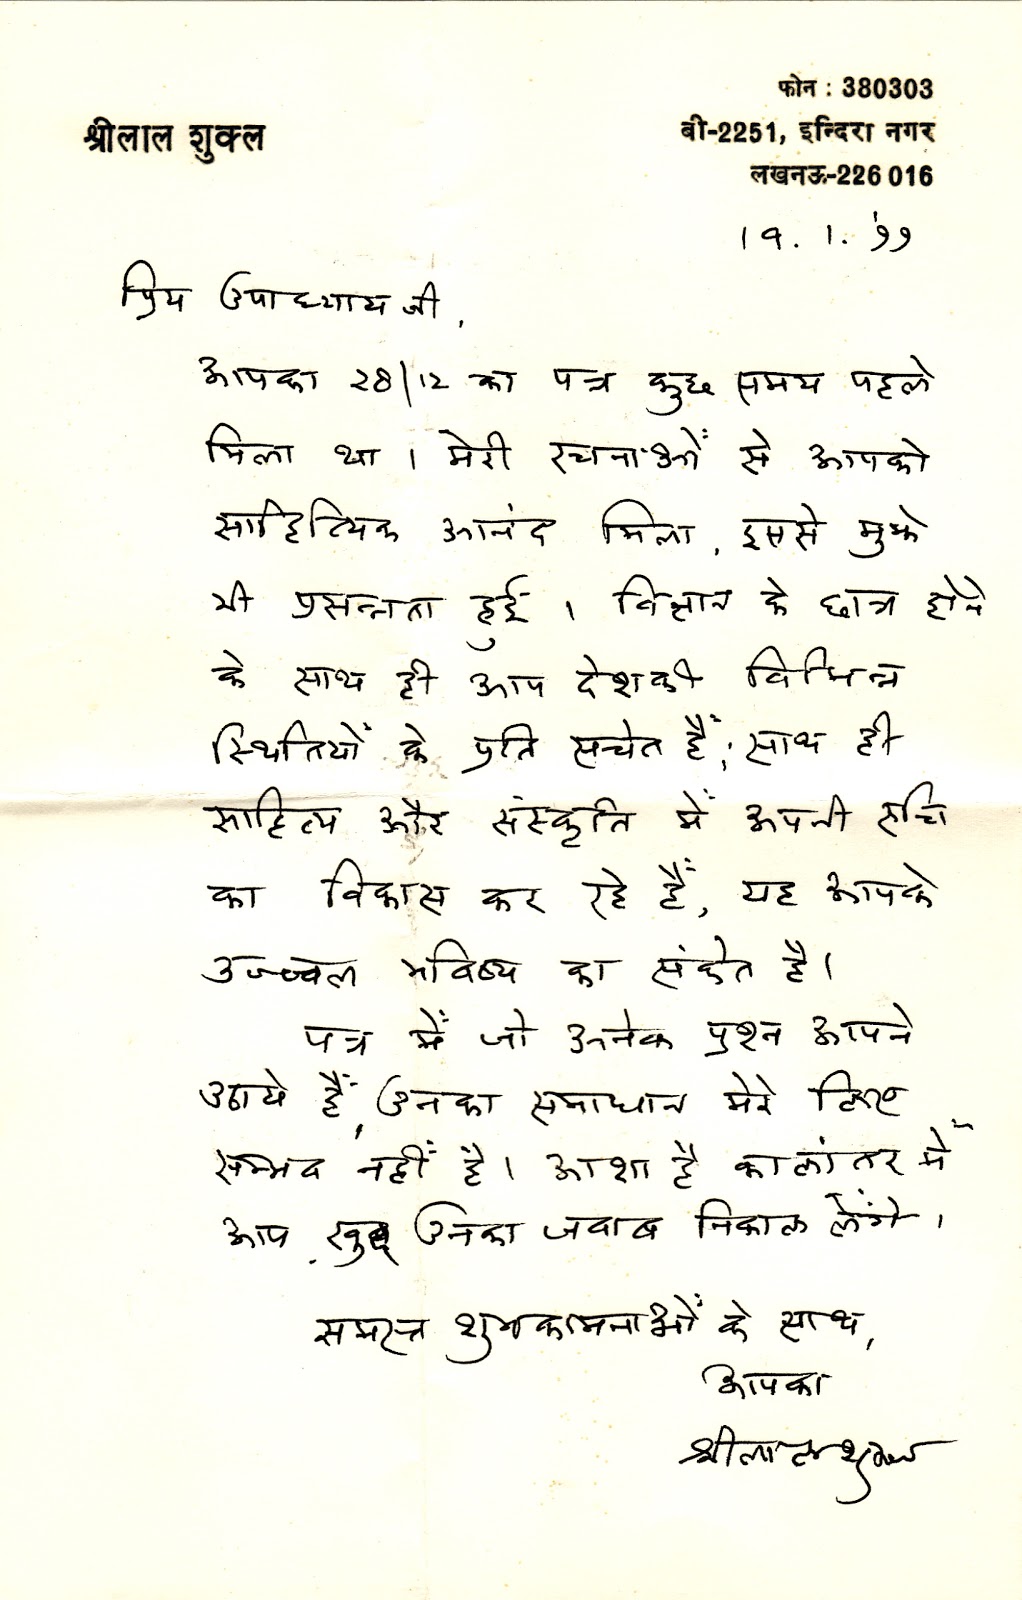 फोन : 380303
श्रीलाल शुक्ल
बी-2251, इन्दिरा नगर
लखनऊ-226 016
19. 1. '99
प्रिय उपाध्याय जी,
आपका 28/12 का पत्र कुछ समय पहले
मिला था। मेरी रचनाओं से आपको
साहित्यिक आनंद मिला, इससे मुझे
भी प्रसन्नता हुई। विज्ञान के छात्र होने
के साथ ही आप देश की विभिन्न
स्थितियों के प्रति सचेत हैं; साथ ही
साहित्य और संस्कृति में अपनी रुचि
का विकास कर रहे हैं, यह आपके
उज्ज्वल भविष्य का संकेत है।
पत्र में जो अनेक प्रश्न आपने
उठाये हैं, उनका समाधान मेरे लिए
सम्भव नहीं है। आशा है कालांतर में
आप खुद उनका जवाब निकाल लेंगे।
समस्त शुभकामनाओं के साथ,
आपका
श्रीलाल शुक्ल